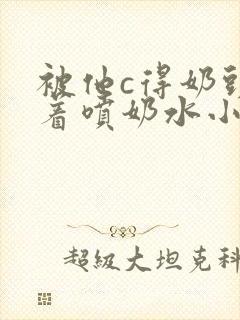 被他c得奶头
着喷奶水小
超级大坦克科